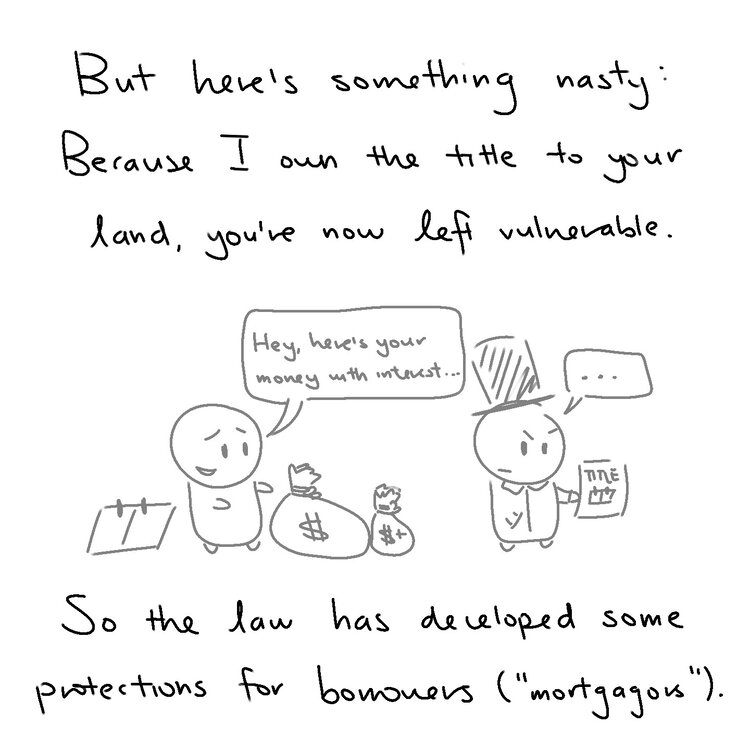 But here's something nasty:
Because I own the title to your
land, you're now left vulnerable.
Hey, here's your
money with interest...
...
TITLE
$
$+
So the law has developed some
protections for borrowers ("mortgagors").